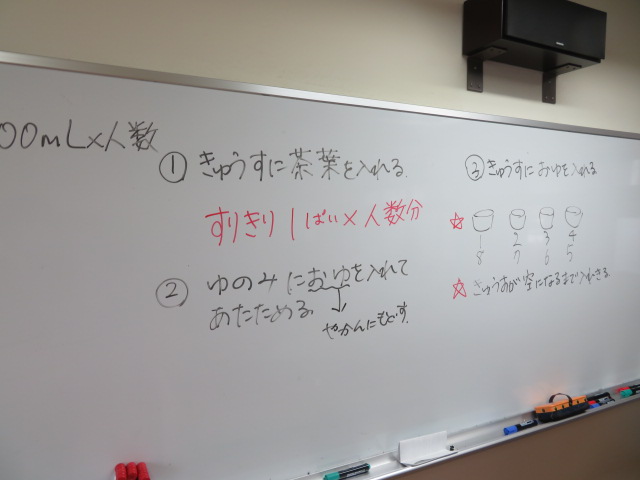 00mL×人数
① きゅうすに茶葉を入れる.
すりきり1ぱい×人数分
② ゆのみにおゆを入れて
あたためる
やかんにもどす.
③ きゅうすにおゆを入れる
☆
1 2 3 4
8 7 6 5
☆ きゅうすが空になるまで入れきる